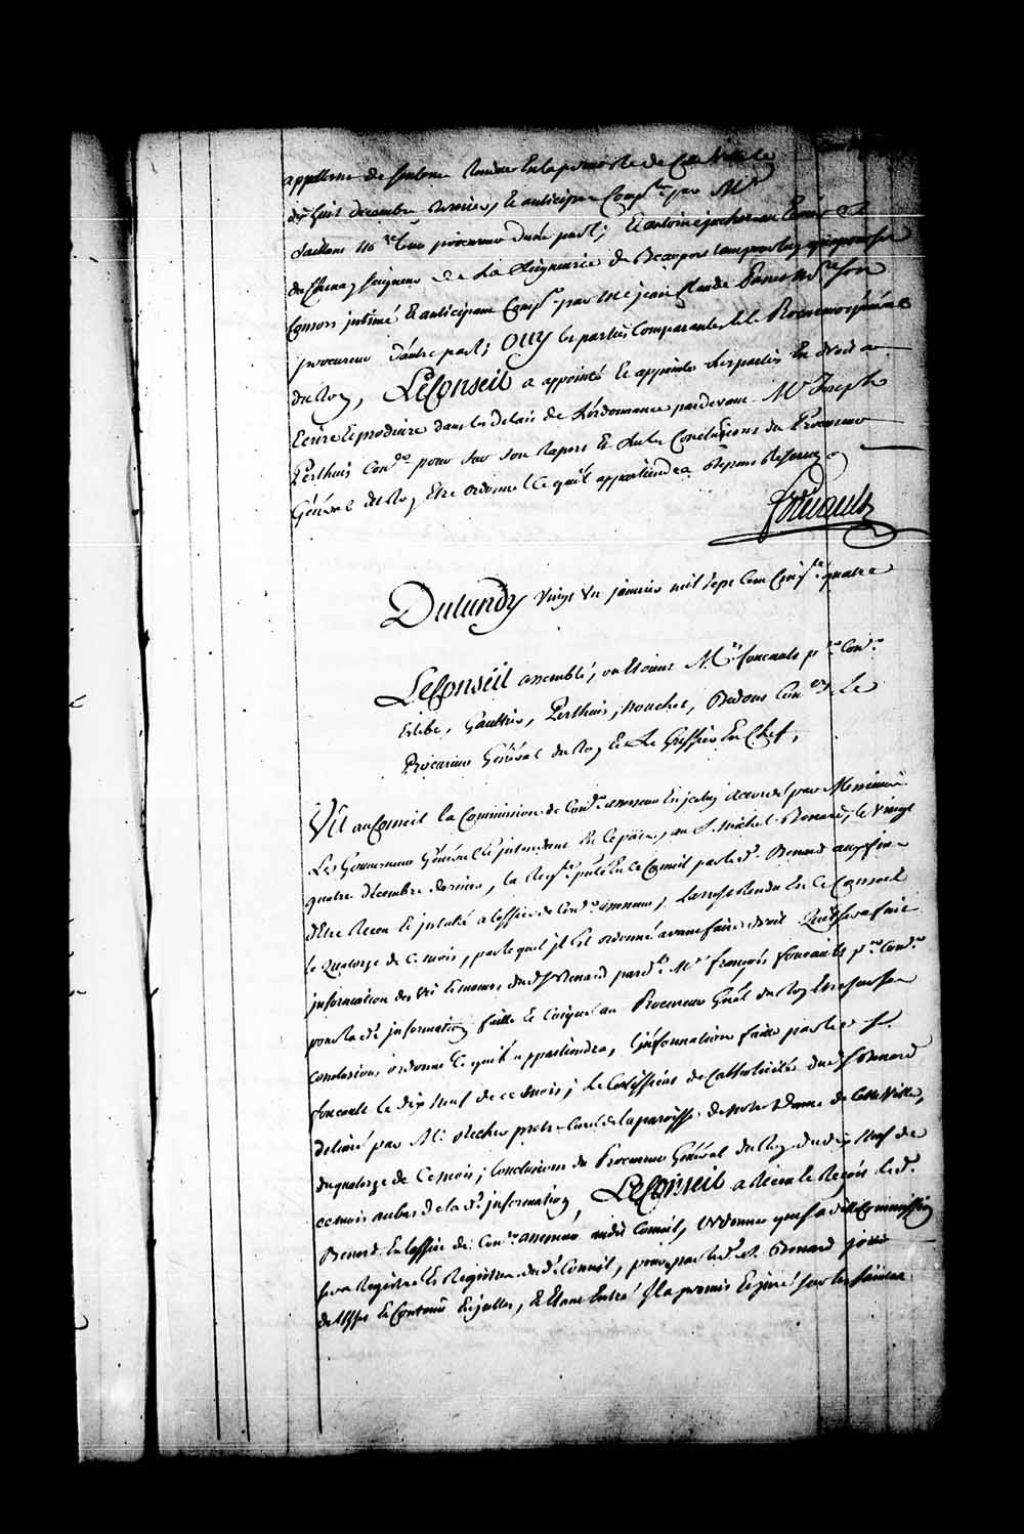 appellant de sentence rendue en la prevosté de cette ville le
dix huit decembre dernier, et anticipé Comp.t par M.e
Saillant no.re son procureur d'une part; Et antoine juchereau Ecuier S.r
du Chenay seigneur de La Seigneurie de Beauport tant pour luy que pour ses
Consors intimé et anticipant Comp.t par M.e jean Claude Panet no.re son
procureur d'autre part; Ouy les parties comparantes et le Procureur général
du Roy, Le Conseil a appointé et appointe les parties en droit a
Ecrire et produire dans les delais de L'ordonnance pardevant M.e Joseph
Perthuis Con.er pour sur son raport et sur les Conclusions du Procureur
Général du Roy Etre ordonné ce qu'il appartiendra depens reservez
Foucault
Du Lundy vingt un janvier mil sept cent Cinq.te quatre
Le Conseil assemblé, ou etoient M.rs foucault p.er Con.er
Estebe, Gaultier, Perthuis, Nouchet, Bedout Con.ers Le
Procureur Général du Roy et Le Greffier En Chef,
Vû au Conseil la Commission de Con.er assesseur en jceluy accordée par Messieurs
Les Gouverneur Général et jntendant En ce païs, au S. Michel Benard, le vingt
quatre decembre dernier, la Req.te pnté En ce Conseil par led. Benard aux fins
d'Etre Receu et jnstalé a l'office de Con.er assesseur; L'arrest Rendu En ce Conseil
le Quatorze de ce mois, par lequel jl Est ordonné avant faire droit Qu'il sera fait
jnformation des vie et moeurs dud. S. Benard pard.t M.e françois foucault p.er Con.er
pour lad. jnformation faitte et Coiquée au Procureur Gnâl du Roy Etre sur ses
conclusions ordonné ce qu'il appartiendra, L'jnformation faitte par led. S.
foucault le dix neuf de ce mois; Le Certifficat de Catholicité dud. S. Benard
delivré par M.e Recher pretre Curé de la paroisse de Notre Dame de cette ville,
du quatorze de ce mois; Conclusions du Procureur Général du Roy du dix neuf de
ce mois au bas de la d. jnformation, Le Conseil a Recu et Reçoit led.
Benard En l'office de Con.er assesseur aud. Conseil, ordonne que sa d. Commission
sera Registrée Es Registres dud. Conseil, pour par led. S. Benard jouir
de l'effet et Contenu En jcelle, Et Etant Entré jl a promis et juré sur les saintes